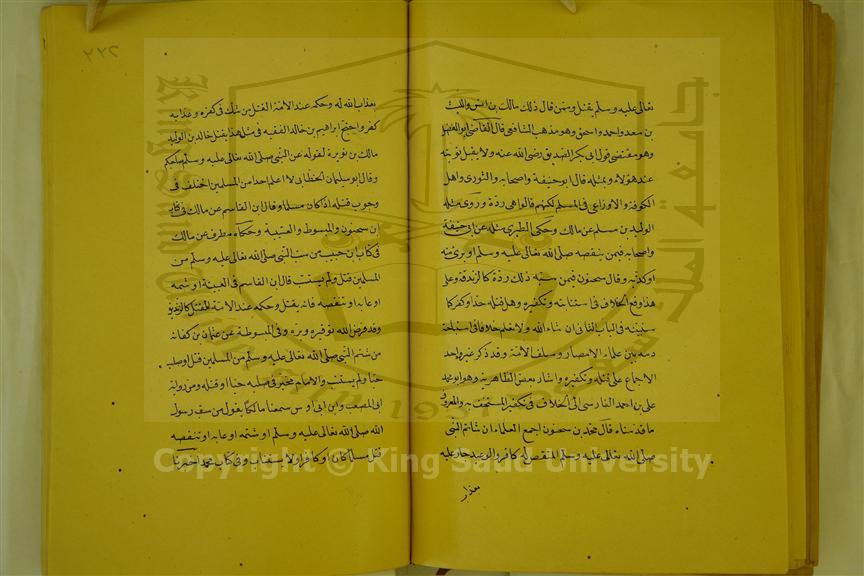 تعالى عليه وسلم يقتل وممن قال ذلك مالك بن انس والليث
بن سعد واحمد واسحق وهو مذهب الشافعى قال القاضى ابو الفضل
وهو مقتضى قول ابى بكر الصديق رضى الله عنه ولا يقبل توبته
عند هؤلاء وبمثله قال ابو حنيفة واصحابه والثورى واهل
الكوفة والاوزاعى فى المسلم لكنهم قالوا هى ردة وروى مثله
الوليد بن مسلم عن مالك وحكى الطبرى مثله عن ابى حنيفة
واصحابه فمن ينقصه صلى الله تعالى عليه وسلم او برئ منه
او كذبه وقال سحنون فمن سبه ذلك ردة كالزندقة وعلى
هذا وقع الخلاف فى استتابته وتكفيره وهل قتله حد او كفر كما
سنبينه فى الباب الثانى ان شاء الله ولا نعلم خلافا فى استباحة
دمه بين علماء الامصار وسلف الامة وقد ذكر غير واحد
الاجماع على قتله وتكفيره واشار بعض الظاهرية وهو ابو محمد
على بن احمد الفارسى الى الخلاف فى تكفير المستخف به والمعروف
ما قدمناه قال محمد بن سحنون اجمع العلماء ان شاتم النبى
صلى الله تعالى عليه وسلم المنتقص له كافر والوعيد جار عليه
بعذاب
٢٢٢
بعذاب الله له وحكمه عند الامة القتل من شك فى كفره وعذابه
كفر واحتج ابراهيم بن خالد الفقيه فى مثل هذا بقتل خالد بن الوليد
مالك بن نويرة لقوله عن النبى صلى الله تعالى عليه وسلم صاحبكم
وقال ابو سليمان الخطابى لا اعلم احدا من المسلمين اختلف فى
وجوب قتله اذا كان مسلما وقال ابن القاسم عن مالك فى كتاب
ابن سحنون والمبسوط والعتبية وحكاه مطرف عن مالك
فى كتاب ابن حبيب من سب النبى صلى الله تعالى عليه وسلم من
المسلمين قتل ولم يستتب قال ابن القاسم فى العتبية او شتمه
او عابه او تنقصه فانه يقتل وحكمه عند الامة القتل كالزنديق
وقد فرض الله توقيره وبره وفى المبسوطة عن عثمان بن كنانة
من شتم النبى صلى الله تعالى عليه وسلم من المسلمين قتل او صلب
حيا ولم يستتب والامام مخير فى صلبه حيا او قتله ومن رواية
ابى المصعب وابن ابى اويس سمعنا مالكا يقول من سب رسول
الله صلى الله تعالى عليه وسلم او شتمه او عابه او تنقصه
قتل مسلما كان او كافرا ولا يستتاب وفى كتاب محمد اخبرنا
Copyright © King Saud University
جامعة الملك سعود
King Saud University
1957